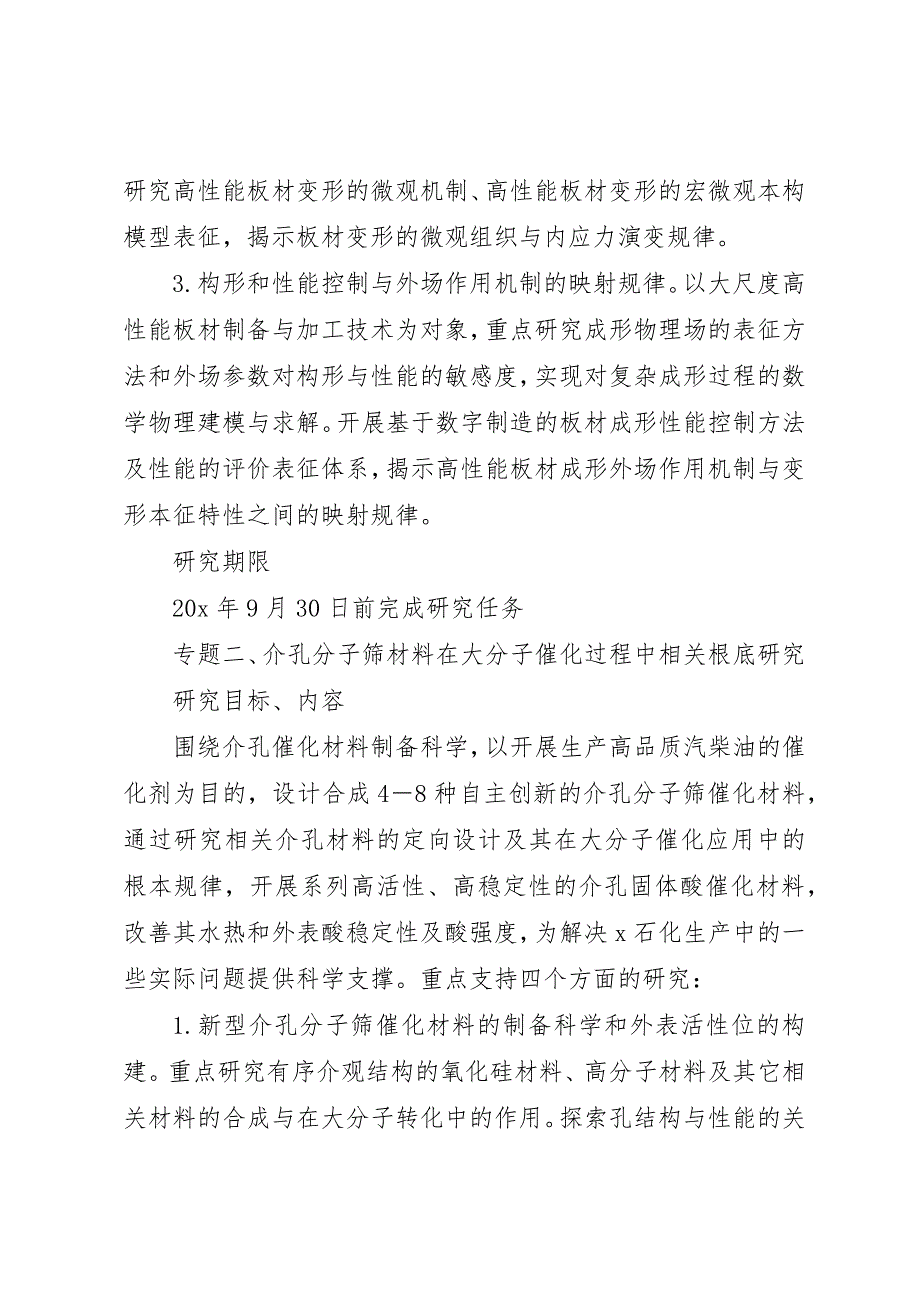 研究高性能板材变形的微观机制、高性能板材变形的宏微观本构
模型表征，揭示板材变形的微观组织与内应力演变规律。
3.构形和性能控制与外场作用机制的映射规律。以大尺度高
性能板材制备与加工技术为对象，重点研究成形物理场的表征方
法和外场参数对构形与性能的敏感度，实现对复杂成形过程的数
学物理建模与求解。开展基于数字制造的板材成形性能控制方法
及性能的评价表征体系，揭示高性能板材成形外场作用机制与变
形本征特性之间的映射规律。
研究期限
20x 年 9 月 30 日前完成研究任务
专题二、介孔分子筛材料在大分子催化过程中相关根底研究
研究目标、内容
围绕介孔催化材料制备科学，以开展生产高品质汽柴油的催
化剂为目的，设计合成 4－8 种自主创新的介孔分子筛催化材料，
通过研究相关介孔材料的定向设计及其在大分子催化应用中的
根本规律，开展系列高活性、高稳定性的介孔固体酸催化材料，
改善其水热和外表酸稳定性及酸强度，为解决 x 石化生产中的一
些实际问题提供科学支撑。重点支持四个方面的研究：
1.新型介孔分子筛催化材料的制备科学和外表活性位的构
建。重点研究有序介观结构的氧化硅材料、高分子材料及其它相
关材料的合成与在大分子转化中的作用。探索孔结构与性能的关